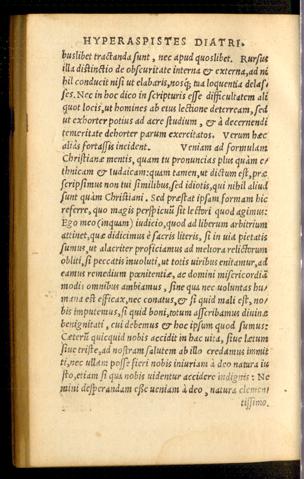 HYPERASPISTES DIATRI.
buslibet tractanda sunt, nec apud quoslibet. Rursus
illa distinctio de obscuritate interna & externa, ad ni
hil conducit nisi ut elabaris, nosq; tua loquentia delas⸗
ses. Nec in hoc dico in scripturis esse difficultatem ali
quot locis, ut homines ab eius lectione deterream, sed
ut exhorter potius ad acre studium, & à decernendi
temeritate dehorter parum exercitatos. Verum hæc
aliàs fortassis incident. Veniam ad formulam
Christianæ mentis, quam tu pronuncias plus quàm e⸗
thnicam & Iudaicam: quam tamen, ut dictum est, præ
scripsimus non tui similibus, sed idiotis, qui nihil aliud
sunt quàm Christiani. Sed præstat ipsam formam hic
referre, quo magis perspicuũ sit lectori quod agimus:
Ego meo (inquam) iudicio, quod ad liberum arbitrium
attinet, quæ didicimus è sacris literis, si in uia pietatis
sumus, ut alacriter proficiamus ad meliora relictorum
obliti, si peccatis inuoluti, ut totis uiribus enitamur, ad
eamus remedium pœnitentiæ, ac domini misericordiã
modis omnibus ambiamus, sine qua nec uoluntas hu⸗
mana est efficax, nec conatus, & si quid mali est, no⸗
bis imputemus, si quid boni, totum asscribamus diuinæ
benignitati, cui debemus & hoc ipsum quod sumus:
Cæterũ quicquid nobis accidit in hac uita, siue lætum
siue triste, ad nostram salutem ab illo credamus immit
ti, nec ullam posse fieri nobis iniuriam à deo natura iu
sto, etiam si qua nobis uidentur accidere indignis: Ne
mini desperandam esse ueniam à deo, natura clemen⸗
tissimo.